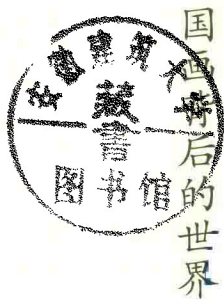 国画背后的世界
安徽建筑大学
藏书
图书馆